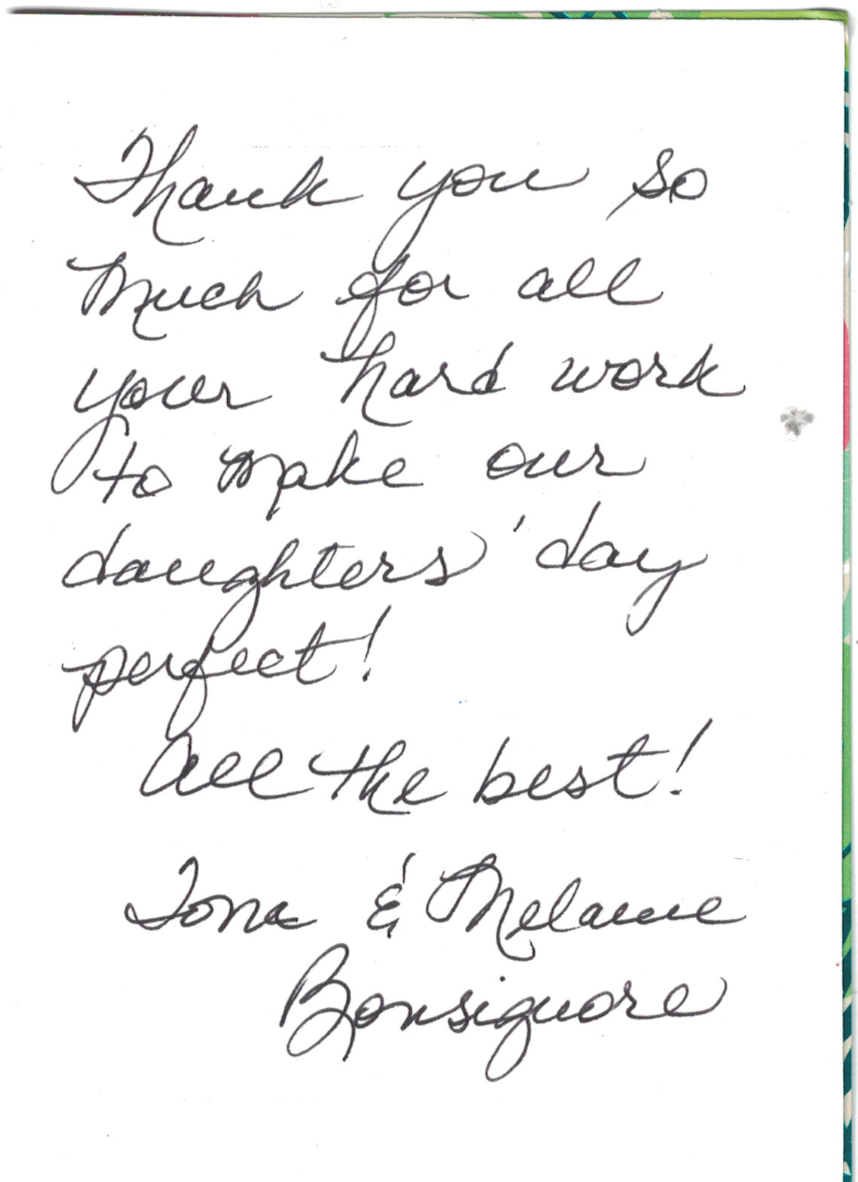 Thank you so
much for all
your hard work
to make our
daughters' day
perfect!
All the best!
& Melanie
Bonsignore